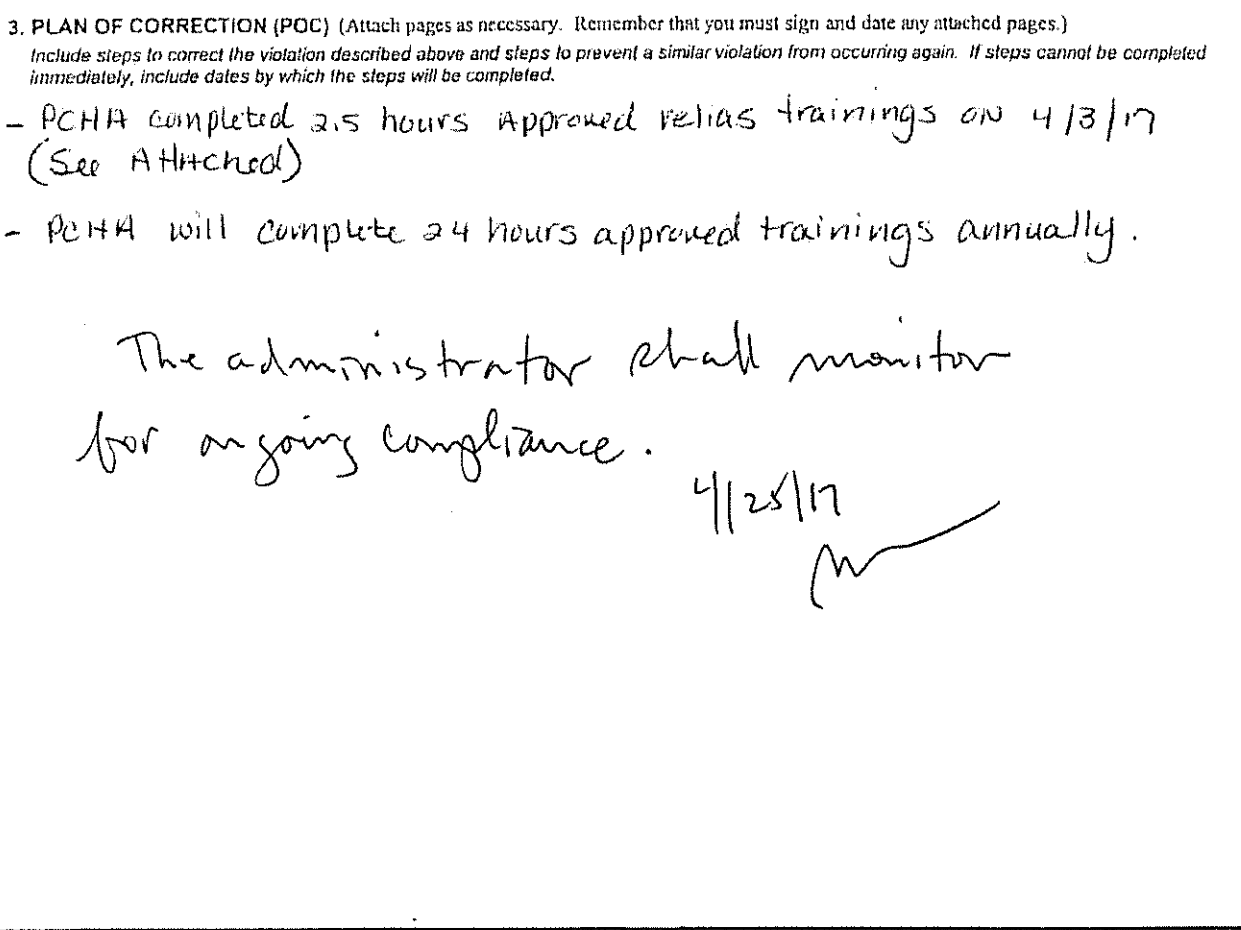 3. PLAN OF CORRECTION (POC) (Attach pages as necessary. Remember that you must sign and date any attached pages.)
Include steps to correct the violation described above and steps to prevent a similar violation from occurring again. If steps cannot be completed
immediately, include dates by which the steps will be completed.
- PCHA completed 2.5 hours Approved relias trainings ON 4/3/17
(See Attached)
- PCHA will complete 24 hours approved trainings annually.
The administrator shall monitor
for ongoing compliance.
4/25/17